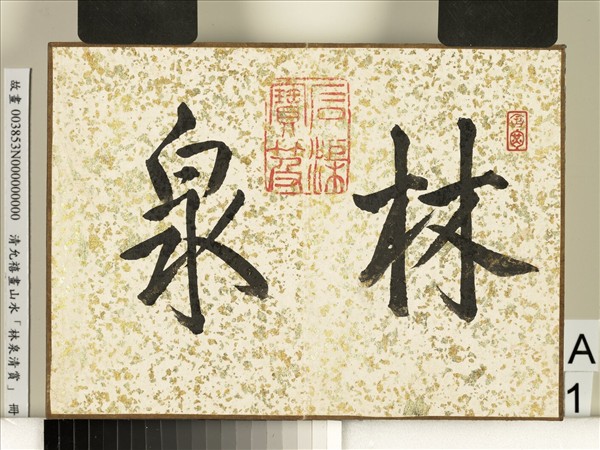 林
泉
故畫 003853N000000000 清允禧畫山水「林泉清賞」 冊
A
1